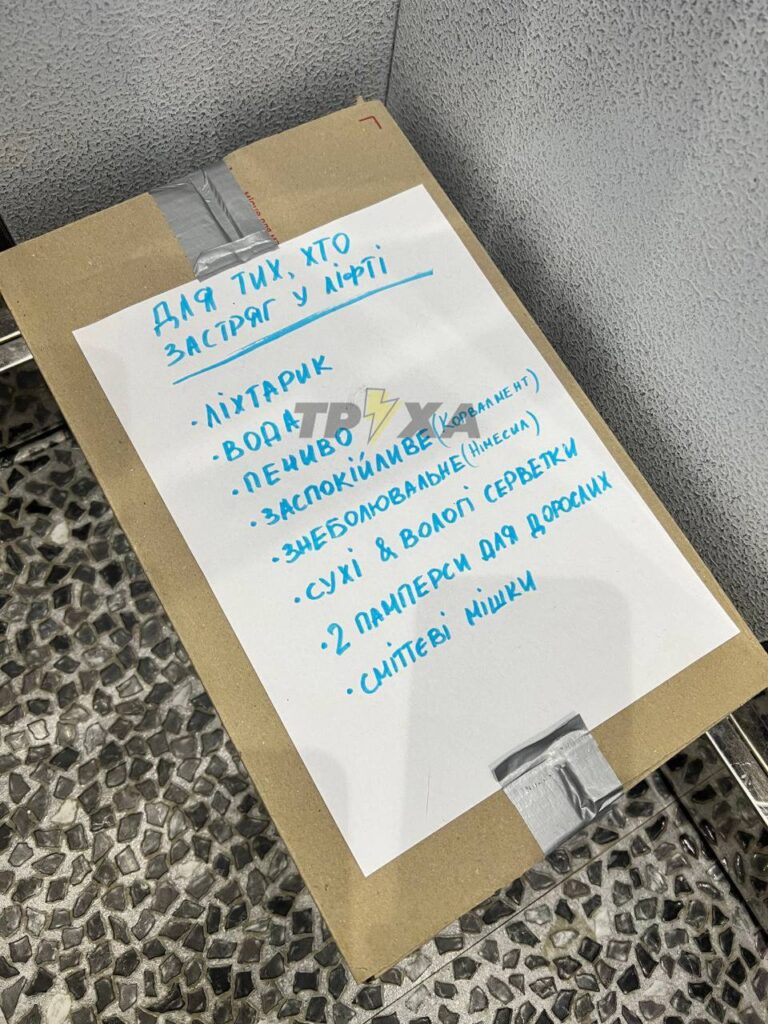 ДЛЯ ТИХ, ХТО
ЗАСТРЯГ У ЛІФТІ
· ЛІХТАРИК
· ВОДА
ТРУХА
· ПЕЧИВО
· ЗАСПОКІЙЛИВЕ (КОРВАЛМЕНТ)
· ЗНЕБОЛЮВАЛЬНЕ (НІМЕСИЛ)
· СУХІ & ВОЛОГІ СЕРВЕТКИ
· 2 ПАМПЕРСИ ДЛЯ ДОРОСЛИХ
· СМІТТЄВІ МІШКИ